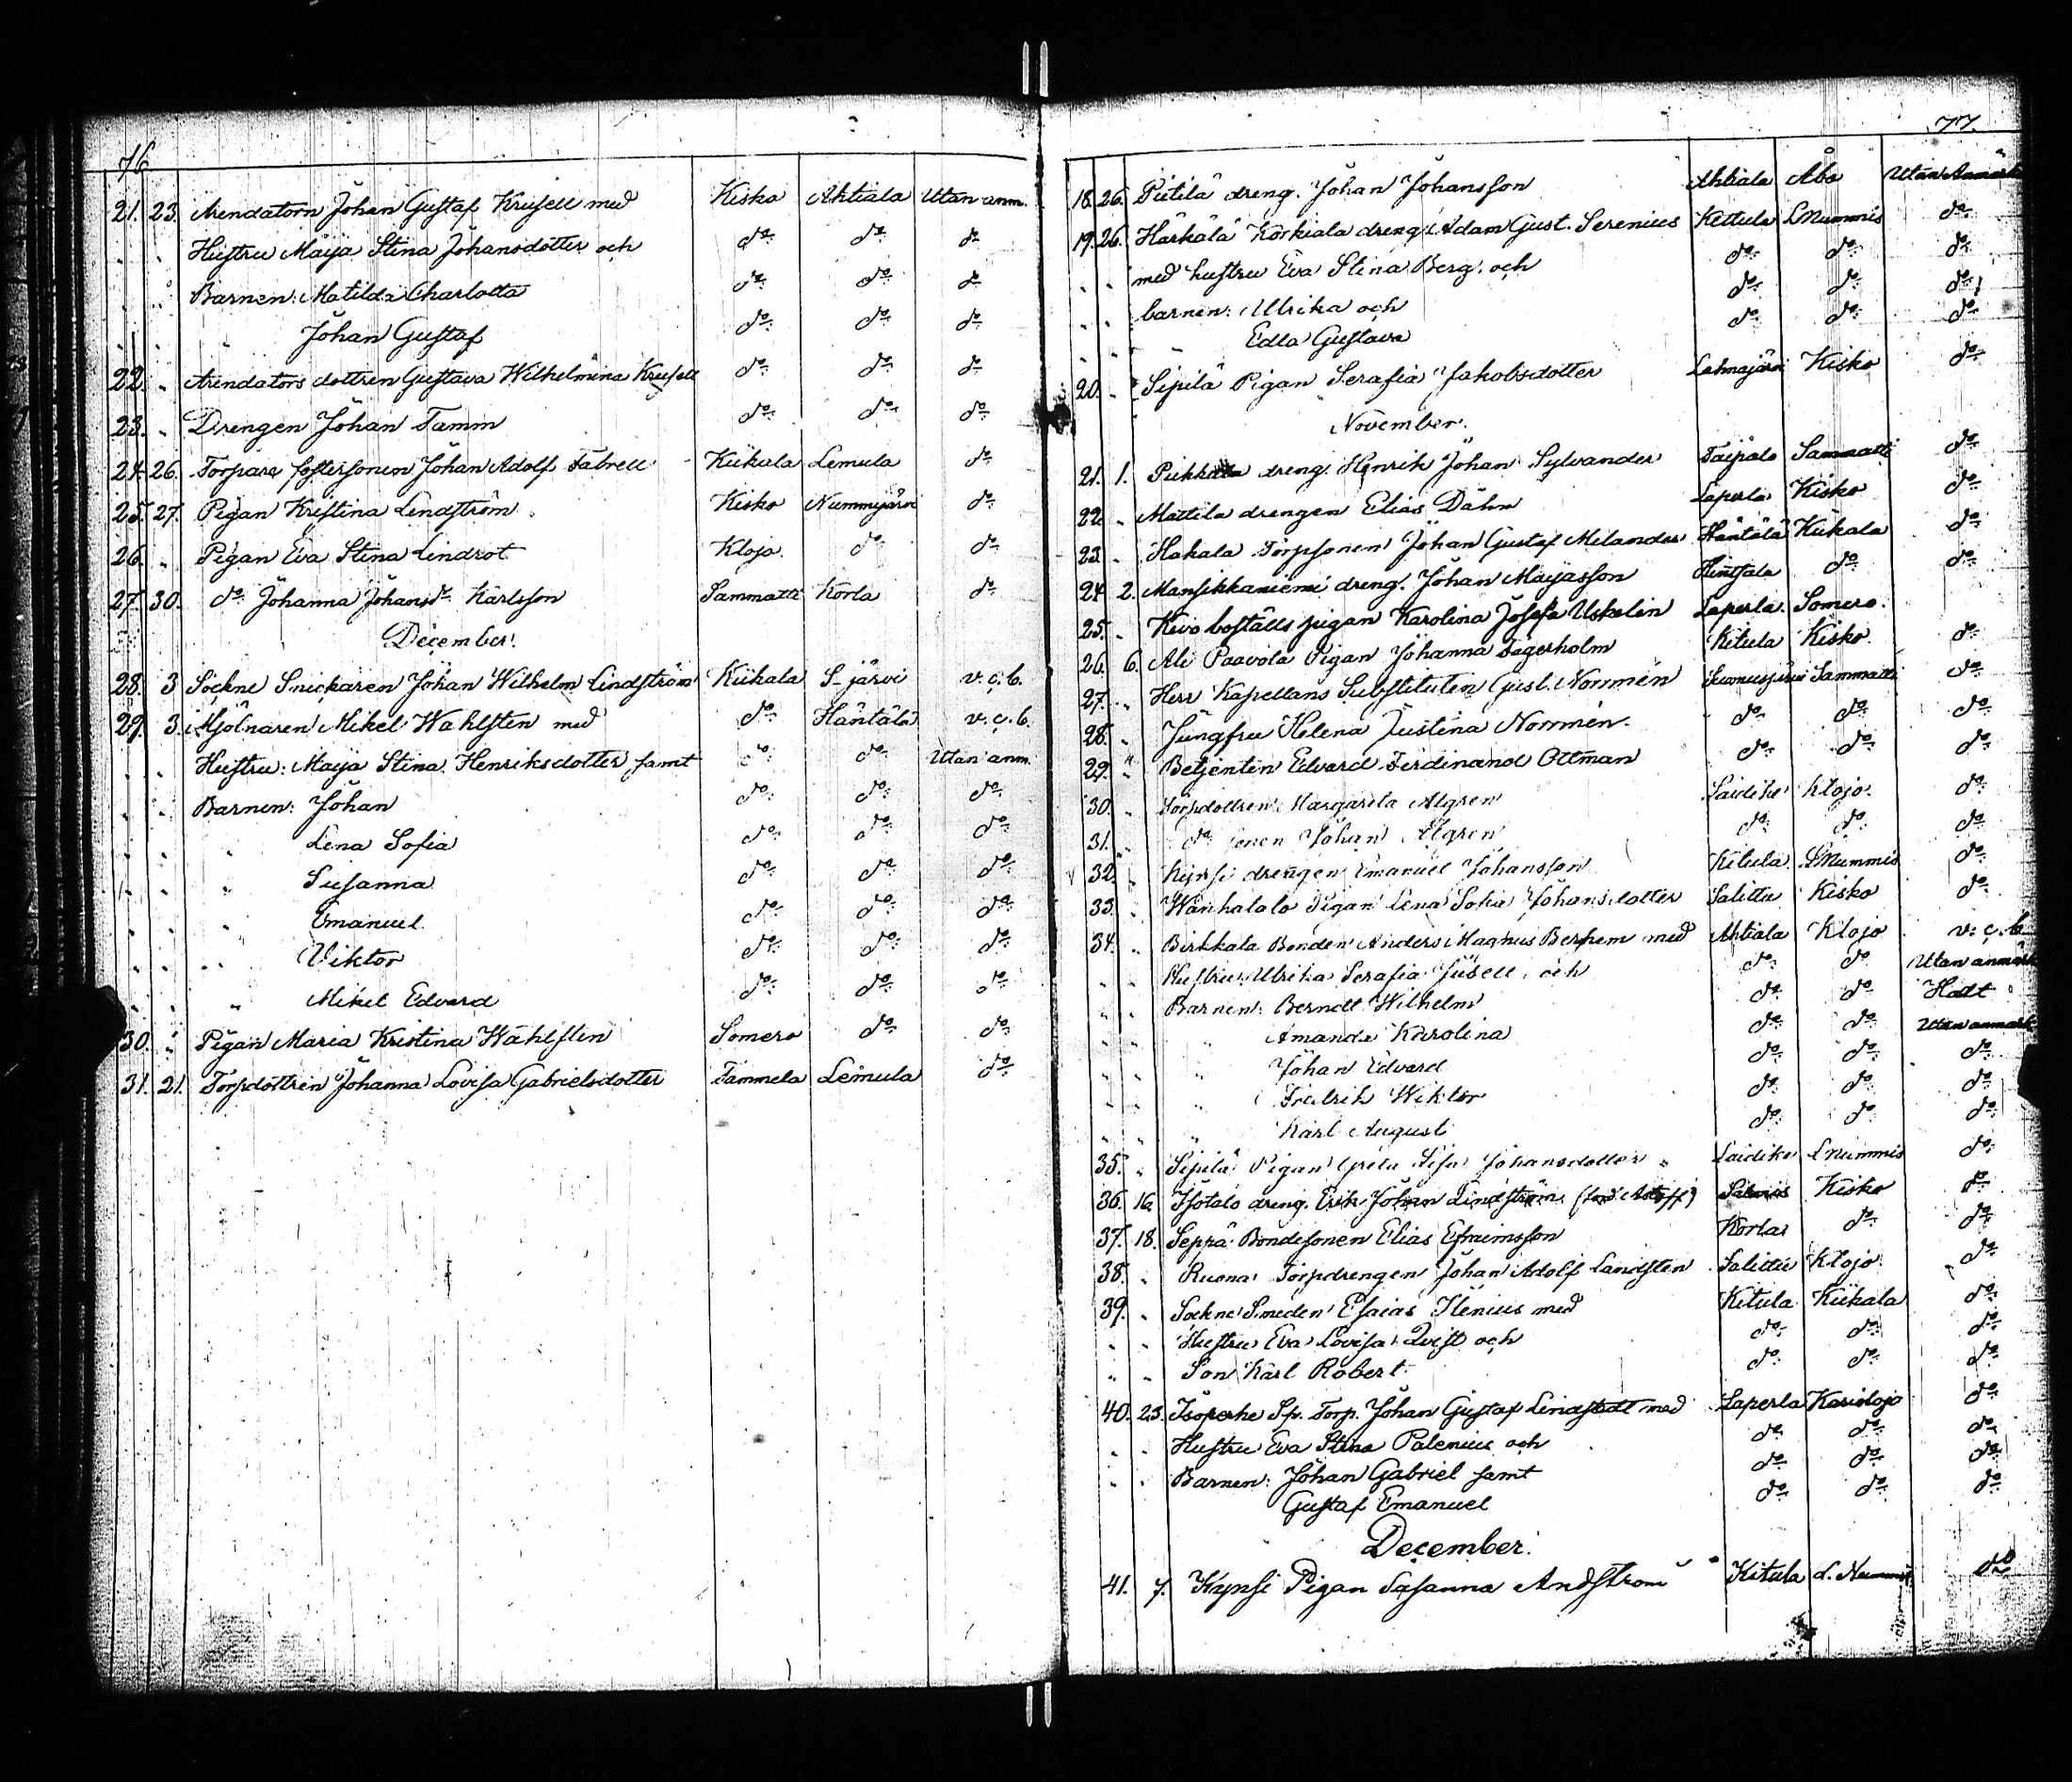 76
21. 23. Arendatorn Johan Gustaf Krusell med Kisko Ahtiala Utan anm.
Hustru Maija Stina Johansdotter och do do do
Barnen: Matilda Charlotta do do do
Johan Gustaf do do do
22. " Arendators dottren Gustava Wilhelmina Krusell do do do
23. " Drengen Johan Tamm do do do
24. 26. Torpare fostersonen Johan Adolf Fabrell Kiikala Lemula do
25. 27. Pigan Kristina Lindström Kisko Nummijärvi do
26. " Pigan Eva Stina Lindrot Klojo do do
27. 30. do Johanna Johansd. Karlsson Sammatti Korla do
December.
28. 3 Sockne Snickaren Johan Wilhelm Lindström Kiikala S-järvi v. c. b.
29. 3. Mjölnaren Mikel Wahlsten med do Häntälä v. c. b.
Hustru: Maija Stina Henriksdotter samt do do Utan anm.
Barnen: Johan do do do
" Lena Sofia do do do
" Susanna do do do
" Emanuel do do do
" Viktor do do do
" Mikel Edvard do do do
30. " Pigan Maria Kristina Wahlsten Somero do do
31. 21. Torpdottren Johanna Lovisa Gabrielsdotter Tammela Lemula do
77.
18. 26. Pietilä dreng. Johan Johansson Ahtiala Åbo Utan Anmärk
19. 26. Härkälä Korkiala dreng. Adam Gust. Serenius Kettula L Nummis do
" " med hustru Eva Stina Berg. och do do do
" " barnen: Ulrika och do do do
" " Edla Gustava do do do
20. " Sipilä Pigan Serafia Jakobsdotter Lahnajärvi Kisko do
November.
21. 1. dreng. Henrik Johan Sylvander Taipalo Sammatti do
22. " Mattila drengen Elias Dahn Laperla Kisko do
23. " Hakala Torpsonen Johan Gustaf Milander Häntälä Kiikala do
24. 2. Mansikkaniemi dreng. Johan Maijasson Hintsala do do
25. " Kivo boställs pigan Karolina Josefa Uskelin Laperla. Somero.
26. 6. Ali Paavola Pigan Johanna Sägerholm Kitula Kisko do
27. " Herr Kapellans Substituten Gust. Norrmén Suomusjärvi Sammatti do
28. " Jungfru Helena Justina Norrmén. do do do
29. " Betjenten Edvard Ferdinand Ottman do do do
30. " Torpdottren Margareta Algren Laidike Klojo. do
31. " do sonen Johan Algren do do do
32. " Kynsi drengen Emanuel Johansson Kitula L Nummis do
33. " Wanhatalo Pigan Lena Sofia Johansdotter Salittu Kisko do
34. " Birkkala Bonden Anders Magnus Berhem med Ahtiala Klojo v. c. b.
" " Hustru: Ulrika Serafia Jusell. och do do Utan anmärk
" " Barnen: Berndt Wilhelm do do Hadt
" Amanda Karolina do do Utan anmark
" Johan Edvard do do do
" Fredrik Wiktor do do do
" Karl August do do do
35. " Sipilä Pigan Greta Lisa Johansdotter Laidike L Nummis do
36. 16. Isotalo dreng. Erik Johan Lindström Kisko do
37. 18. Seppä Bondesonen Elias Efraimsson Korla do do
38. " Ruona Torpdrengen Johan Adolf Landsten Salittu Klojo. do
39. " Sockne Smeden Esaias Ilenius med Kitula Kiikala do
" " Hustru Eva Lovisa Qvist och do do do
" " Son Karl Robert do do do
40. 23. Isoperhe Sp. Torp. Johan Gustaf Lindstedt med Laperla Karislojo do
" " Hustru Eva Stina Palenius och do do do
" " Barnen: Johan Gabriel samt do do do
Gustaf Emanuel do do do
December.
41. 7. Kynsi Pigan Susanna Andström Kitula L. Nummis do